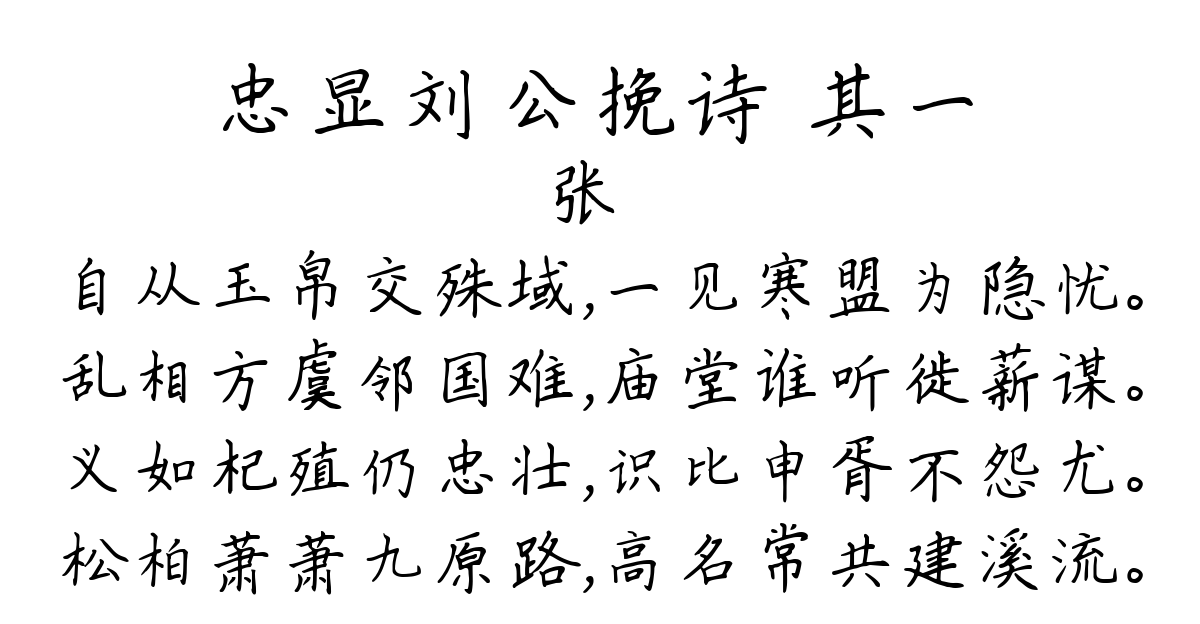 忠显刘公挽诗 其一
张
自从玉帛交殊域,一见寒盟为隐忧。
乱相方虞邻国难,庙堂谁听徙薪谋。
义如杞殖仍忠壮,识比申胥不怨尤。
松柏萧萧九原路,高名常共建溪流。